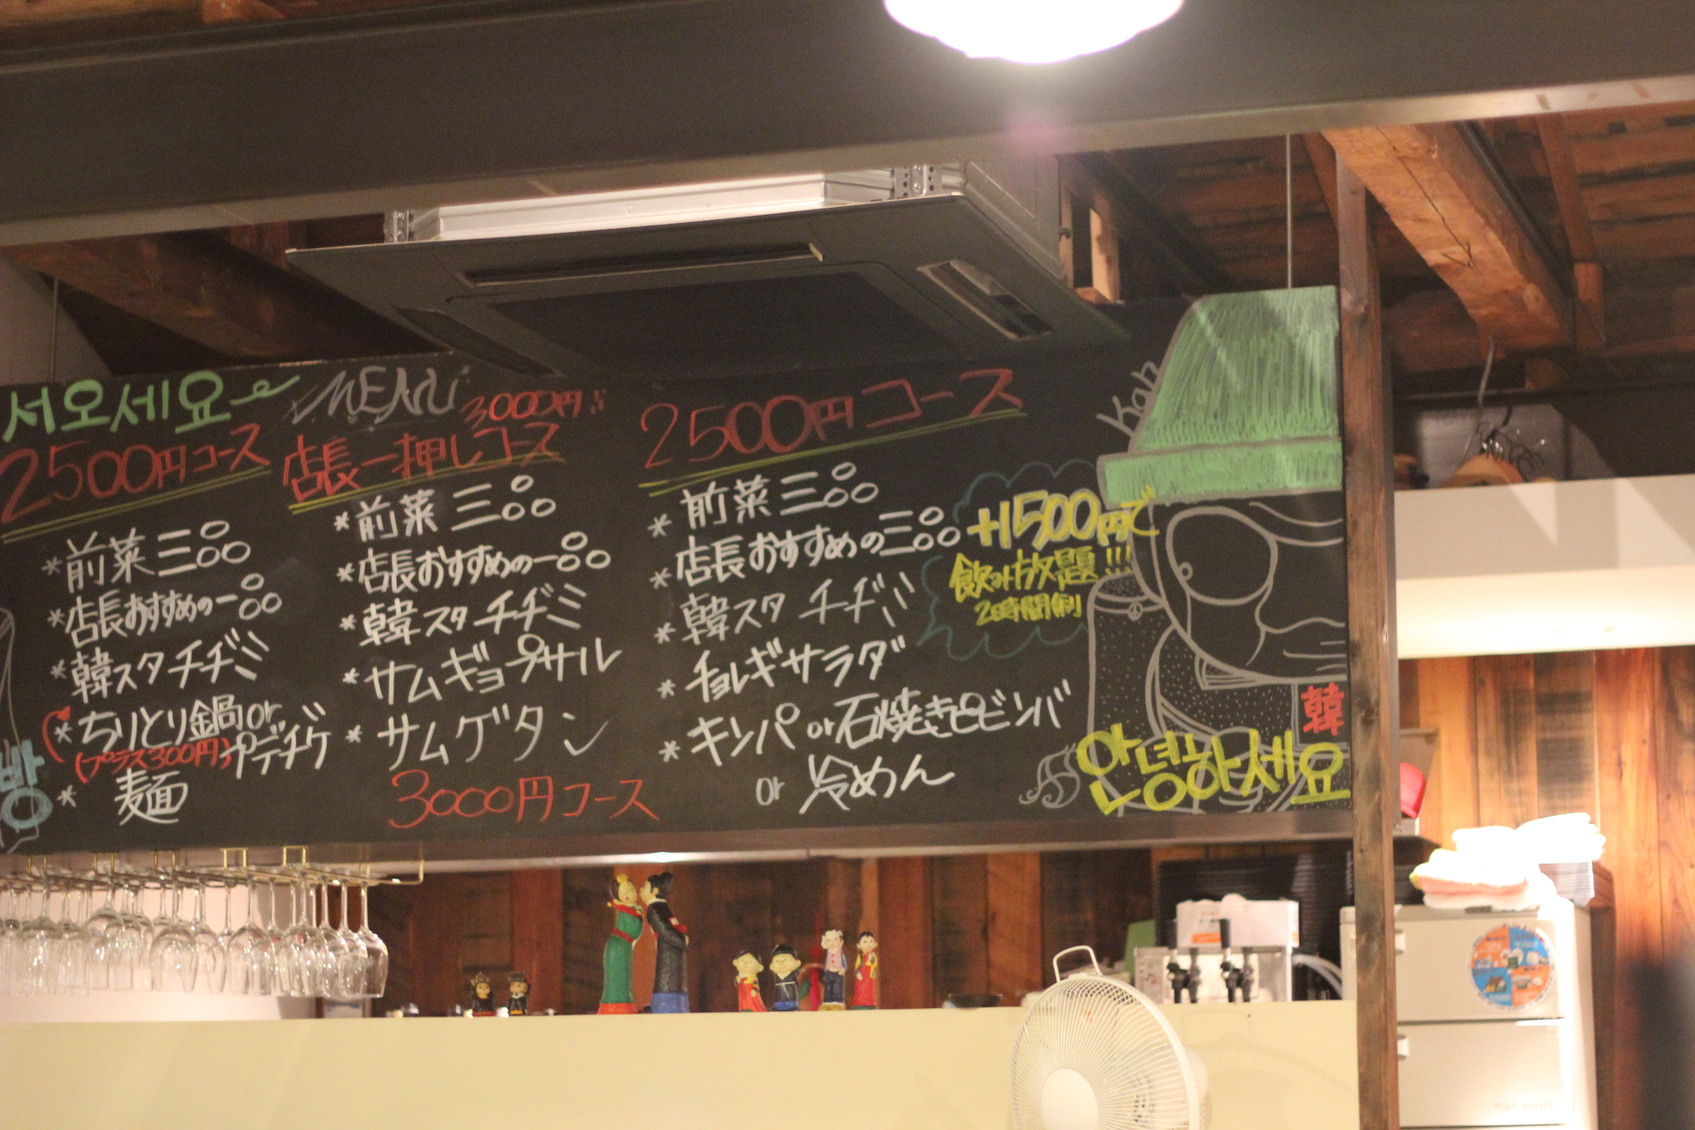 서오세요
MENU
2500円コース
*前菜三品
*店長おすすめの一品
*韓スタチヂミ
*ちりとり鍋or
(プラス300円)プデチゲ
*麦麺
방
3000円
店長一押しコース
*前菜三品
*店長おすすめの一品
*韓スタチヂミ
*サムギョプサル
*サムゲタン
3000円コース
2500円コース
*前菜三品
*店長おすすめの三品
*韓スタチヂミ
*チョレギサラダ
*キンパor石焼きピビンバ
or冷めん
+1500円で
飲み放題!!!
2時間制
韓
안녕하세요